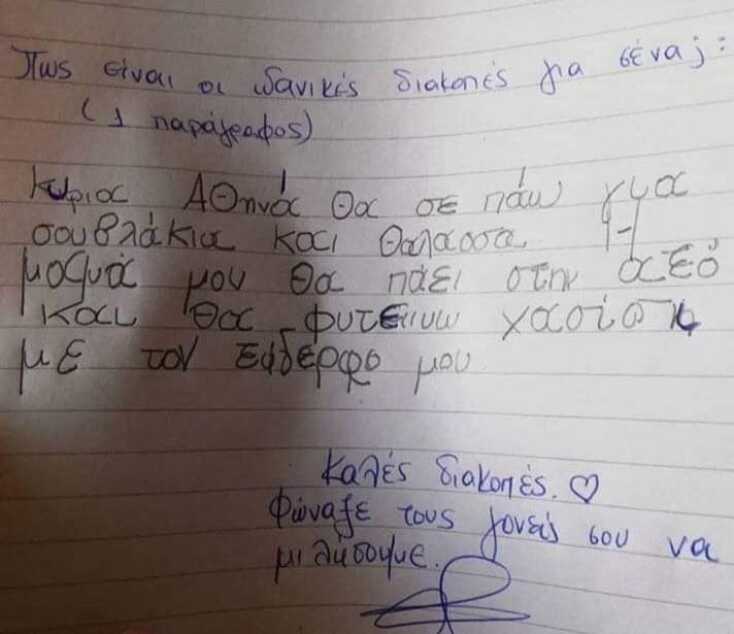 Πως είναι οι ιδανικές διακοπές για σένα; :
(1 παράγραφος)
Κύρια Αθηνά θα σε πάω για
σουβλάκια και θαλασσα. Η
μαμά μου θα πάει στην
και θα φυτεψω χασίσι
με τον εφδερφο μου
Καλές διακοπές. ♡
Φώναξε τους γονείς σου να
μιλήσουμε.